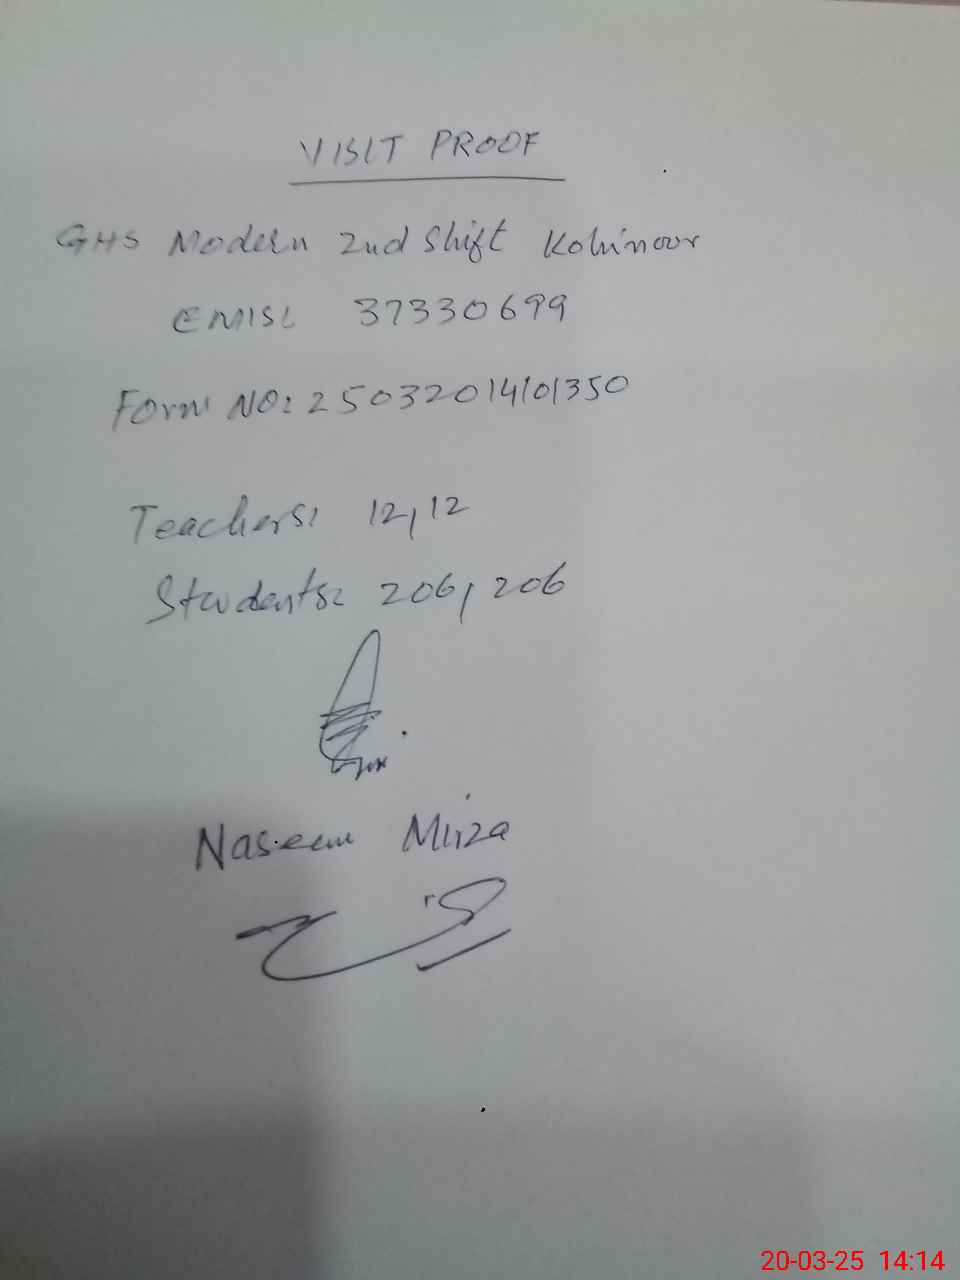 VISIT PROOF
GHS Modern 2nd Shift Kohinoor
EMIS: 37330699
Form NO: 25032014101350
Teachers: 12,12
Students: 206, 206
Naseem Mirza
20-03-25 14:14